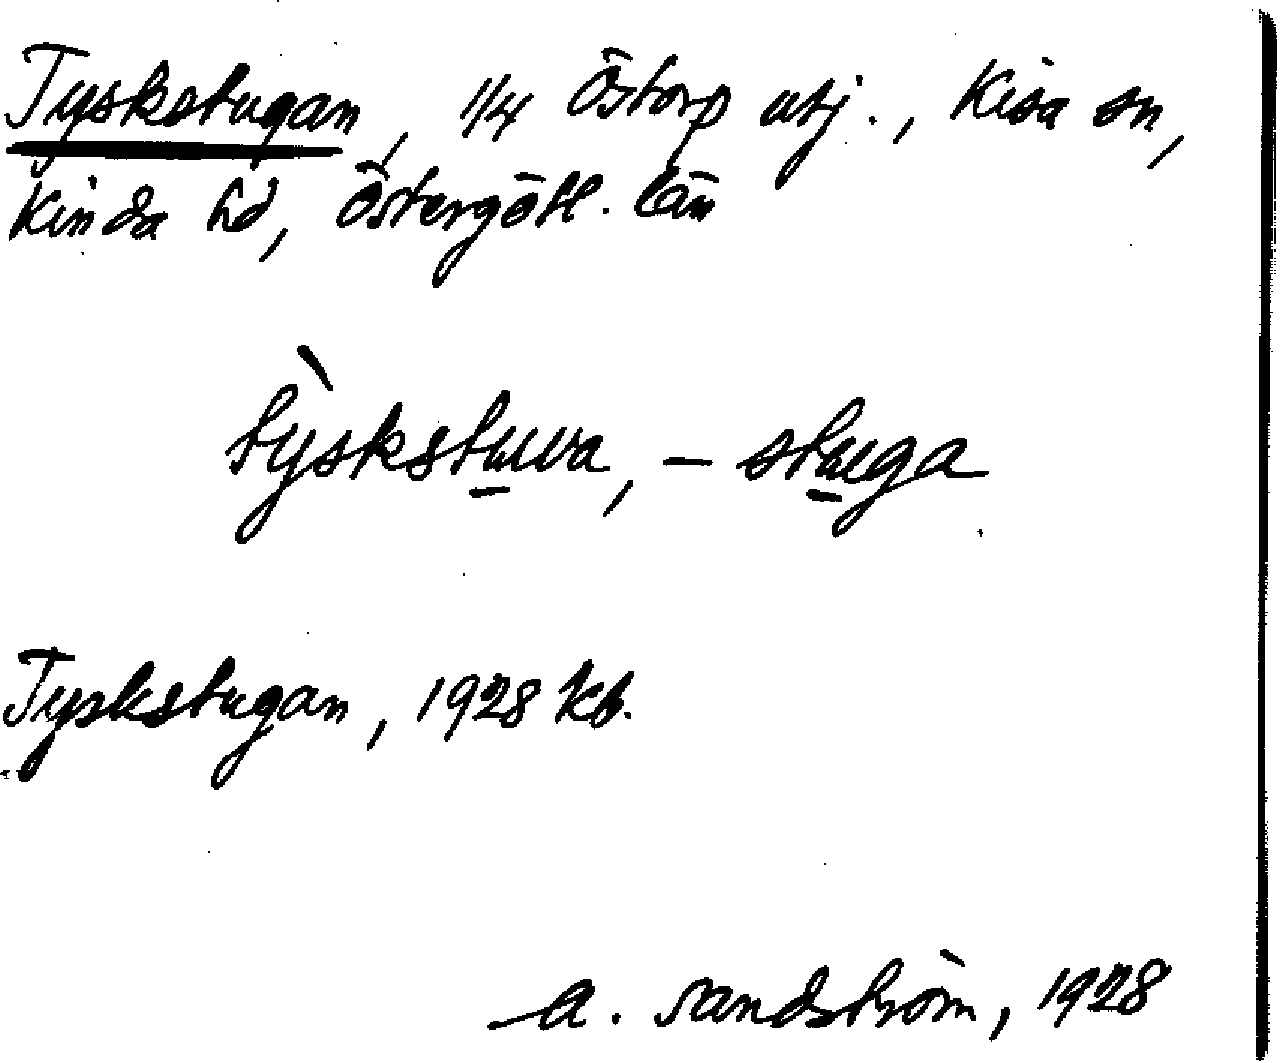 Tyskstugan, 1/4 Östorp utj., Kisa sn,
Kinda hd, Östergötl. län
tỳskstu̲va, – stu̲ga
Tyskstugan, 1928 kb.
A. Sandström, 1928